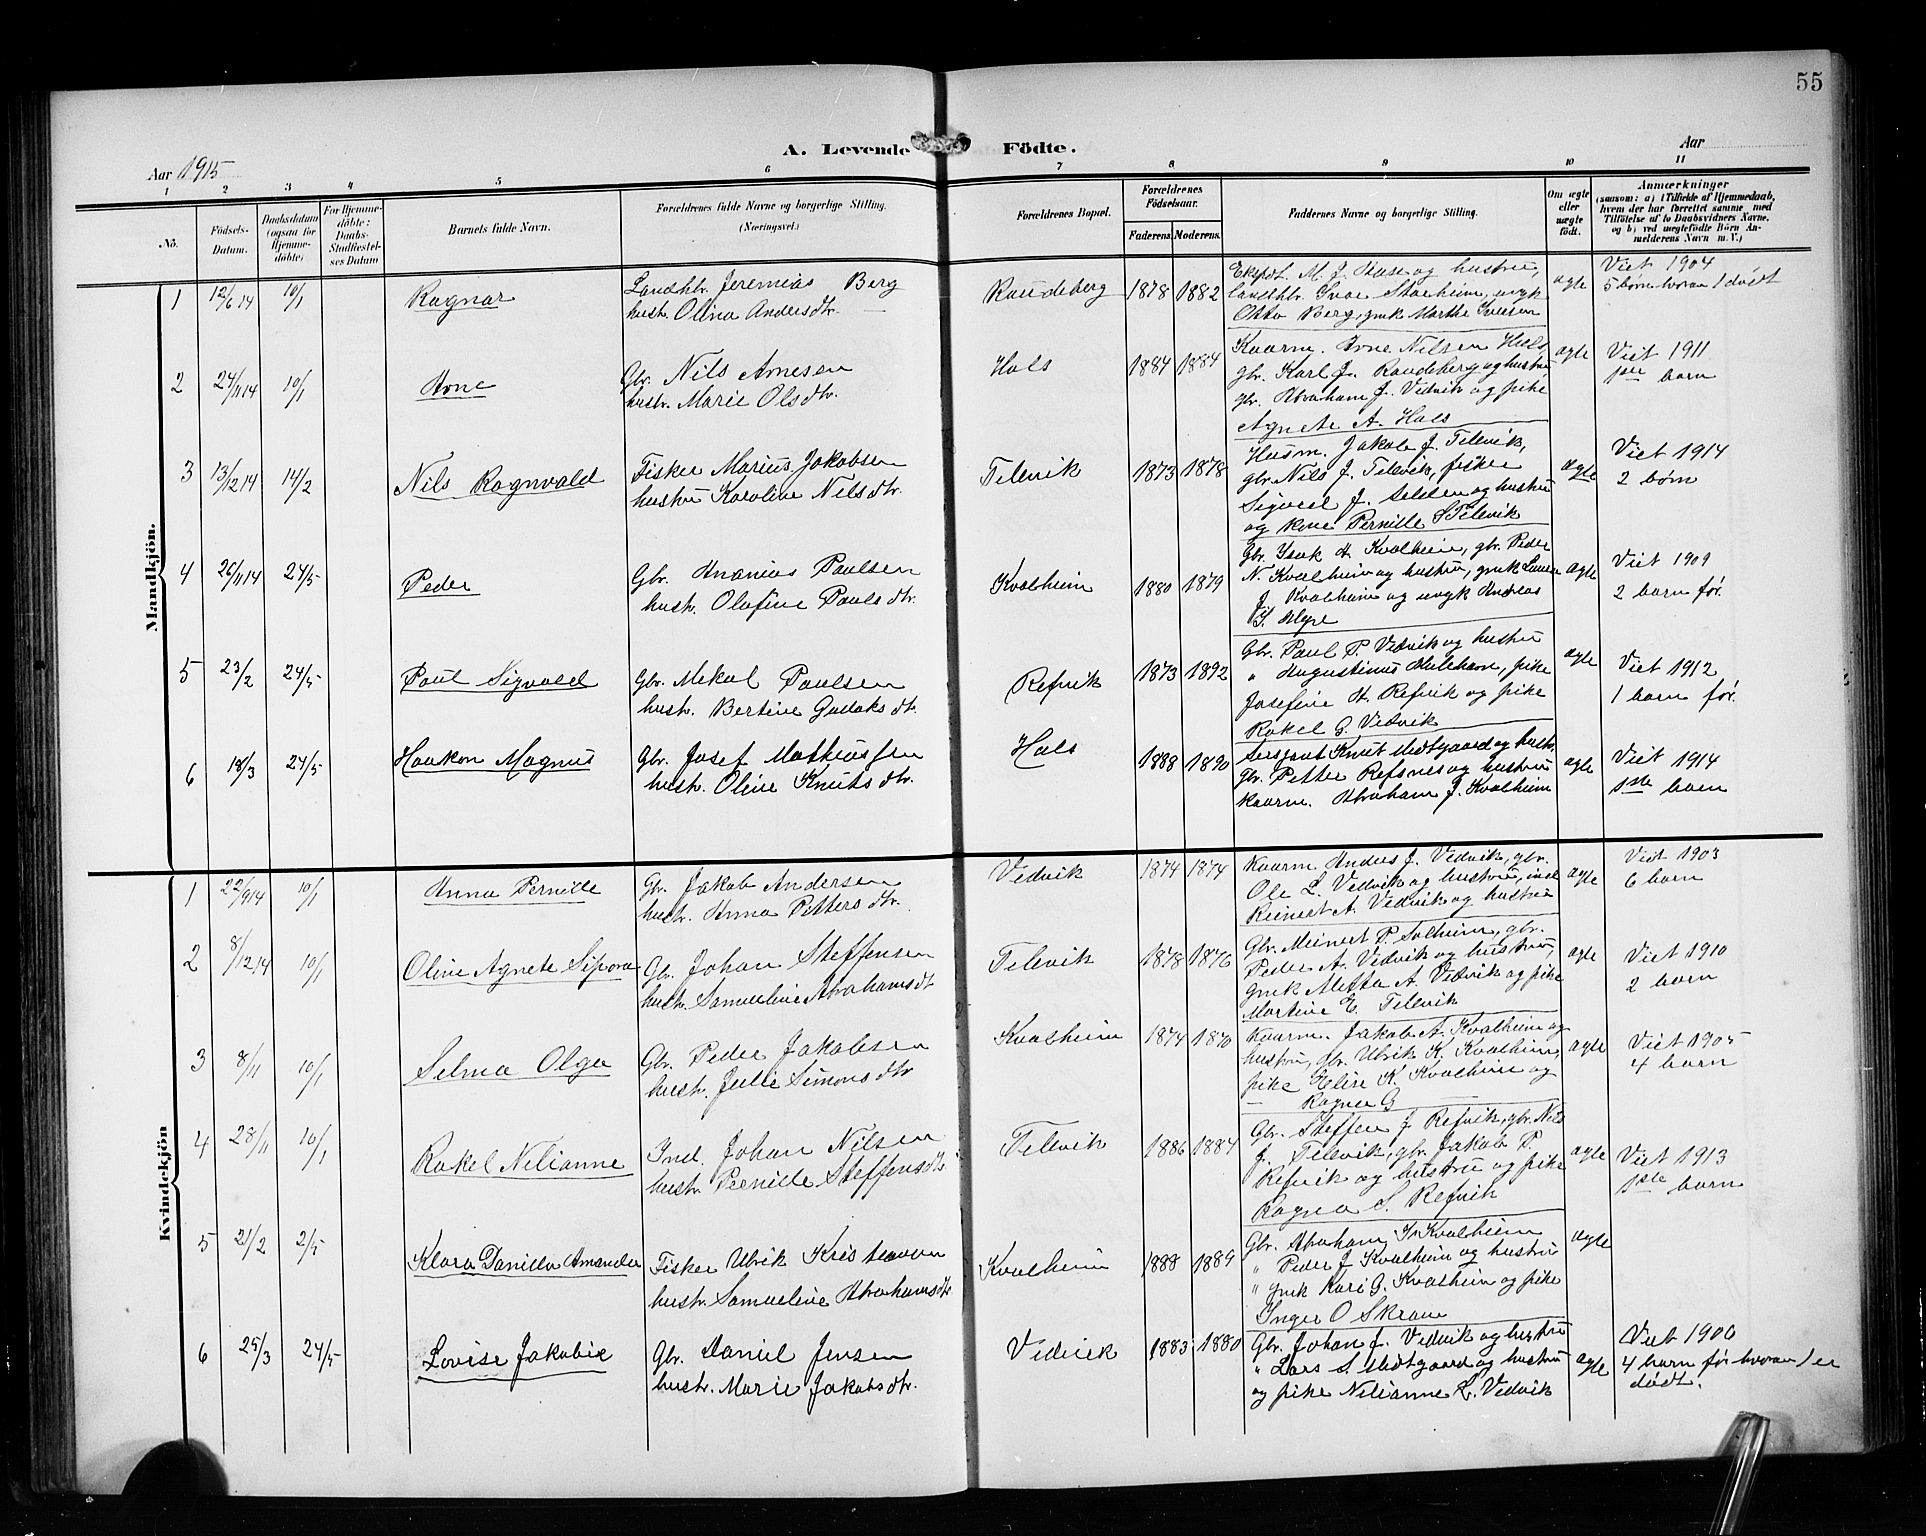 55
A. Levende Födte.
Aar 1915
Aar
1 2 3 4 5 6 7 8 9 10 11
No.
Födsels-Datum.
Daabsdatum (ogsaa for Hjemme-döbte)
For Hjemme-döbte: Daabs-Stadfæstel-ses Datum
Barnets fulde Navn.
Forældrenes fulde Navne og borgerlige Stilling. (Næringsvei.)
Forældrenes Bopæl.
Forældrenes Födselsaar.
Faderens. Moderens.
Faddernes Navne og borgerlige Stilling.
Om ægte eller uægte födt.
Anmærkninger
(saasom: a) i Tilfælde af Hjemmedaab, hvem der har forrettet samme med Tilföielse af to Daabsvidners Navne, og b) ved uægtefödte Börn An-melderens Navn m. V.)
Mandkjön.
1 12/6 14 10/1 Ragnar
Landhb. Jeremias Berg
hustr. Olina Andersdtr.
Raudeberg 1878 1882
Ekspdt. M. J. Hase og hustru,
landhbr. Ivar Starheim, ungk
Otto Berg, gmk Marthe Iversen
ægte
Viet 1904
5 børn hvoraf 1 dødt
2 24/11 14 10/1 Arne
Gbr. Nils Arnesen
hustr. Marie Olsdtr.
Hals 1884 1884
Kaarm. Arne Nilsen Hals
gbr. Karl J. Raudeberg og hustru
gbr. Abraham J. Vedvik og pike
Agnete A. Hals
ægte
Viet 1911
1ste barn
3 13/12 14 14/2 Nils Ragnvald
Fisker Marius Jakobsen
hustru Karoline Nilsdtr.
Tilevik 1873 1878
Husm. Jakob J. Tilevik,
gbr. Nils J. Tilevik, fisker
Sigvar J. og hustru
og kone Pernille S Tilevik
ægte
Viet 1914
2 børn
4 26/11 14 24/5 Peder
Gbr. Ananias Paulsen
hustr. Olufine Paulsdtr.
Kvalheim 1880 1879
Gbr. Isak A Kvalheim, gbr. Peder
N. Kvalheim og hustru, gmk Laura
J. Kvalheim og ungk Andreas
ægte
Viet 1909
2 barn før.
5 23/2 24/5 Paul Sigvald
Gbr. Mekal Paulsen
hustr. Bertine Gullaksdtr.
Refvik 1873 1892
Gbr. Paul P. Vedvik og hustru
" Augustinus Hulehavn, pike
Josefine A. Refvik og pike
Rakel G. Vedvik
ægte
Viet 1912
1 barn før.
6 18/3 24/5 Haakon Magnus
Gbr. Josef Mathiassen
hustr. Oline Knutsdtr.
Hals 1888 1890
Sersjant Knut Midtgaard og hustr.
Gbr. Petter Refsnes og hustru
kaarm. Abraham J. Kvalheim
ægte
Viet 1914
1ste barn
Kvindekjön
1 22/9 14 10/1 Anna Pernille
Gb. Jakob Andersen
hustr. Anna Pettersdtr.
Vedvik 1874 1874
Kaarm. Anders J. Vedvik, gbr.
Ole L. Vedvik og hustru, ind.
Reinert A. Vedvik og hustru
ægte
Viet 1903
6 barn
2 8/12 14 10/1 Oline Agnete Sipora
Gb. Johan Steffensen
hustr. Samueline Abrahamsdt
Tilevik 1878 1876
Gbr. Meinert P. Solheim, gbr.
Peder A. Vedvik og hustru,
gmk Metta A. Vedvik og pike
Martine E. Tilevik
ægte
Viet 1910
2 barn
3 8/11 10/1 Selma Olga
Gbr. Peder Jakobsen
hustr. Julie Simonsdtr
Kvalheim 1874 1870
Kaarm. Jakob A. Kvalheim og
hustru, gbr. Ulrik K. Kvalheim,
pike Elise K. Kvalheim og
Ragna G
ægte
Viet 1905
4 barn
4 28/11 10/1 Rakel Nilianne
Ind. Johan Nilsen
hustr. Pernille Steffensdtr
Tilevik 1886 1884
Gbr. Steffen J Refvik, gbr. Nils
J. Tilevik, gbr. Jakob P.
Refvik og hustru og pike
Ragna S. Refvik
ægte
Viet 1913
1ste barn
5 21/2 2/5 Klara Danilla Amanda
Fisker Ulrik Kristiansen
hustr. Samueline Abrahamsdtr
Kvalheim 1888 1889
Gbr. Abraham Kvalheim
" Peder J Kvalheim og hustru
" gmk Kari G. Kvalheim og pike
Inger O Skram
ægte
6 25/3 24/5 Lovise Jakobie
Gbr. Daniel Jensen
hustr. Marie Jakobsdtr.
Vedvik 1883 1880
Gbr. Johan J. Vedvik og hustru
" Lars S. Midtgaard og hustru
og pike Nilianne L. Vedvik
ægte
Viet 1906
4 barn før hvoraf 1 er
dødt.